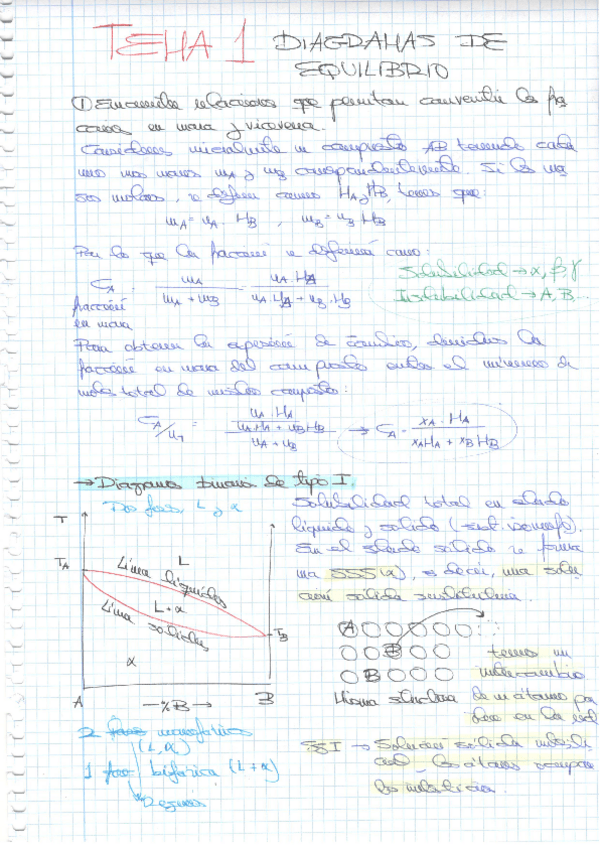 TEMA 1 DIAGRAMAS DE
EQUILIBRIO
① Encuentre relaciones que permitan convertir las frac
ciones en masa y viceversa.
Consideremos inicialmente un compuesto AB teniendo cada
uno unas masas mA y mB correspondientemente. Si las ma
sas molares, se definen como MA y MB, tenemos que:
mA = nA · MA , mB = nB MB
Por lo que la fracción se definirá como:
CA = mA / (mA + mB) = nA · MA / (nA · MA + nB · MB)
fracción
en masa
Solubilidad → α, β, γ
Insolubilidad → A, B...
Para obtener la expresión de cambio, dividimos la
fracción en masa del compuesto entre el número de
moles total de ambos compuestos:
CA/nT = (nA · MA) / (nA MA + nB MB) / (nA + nB) → CA = xA · MA / (xA MA + xB MB)
→ Diagramas binarios de tipo I
Dos fases L y α
T
TA
L
Línea líquidus
L + α
Línea solidus
TB
α
A
—%B→
B
Solubilidad total en estado
líquido y sólido (sist. isomorf).
En el estado sólido se forma
una SSS (α), es decir, una solu
ción sólida sustitucional.
A
B
B
tenemos un
intercambio
Misma estructura de un átomo por
otro en la red
2 monofásicas
(L, α)
1 bifásica (L+α)
Regiones
SSI → Solución sólida intersti
cial - los átomos ocupan
los intersticios.